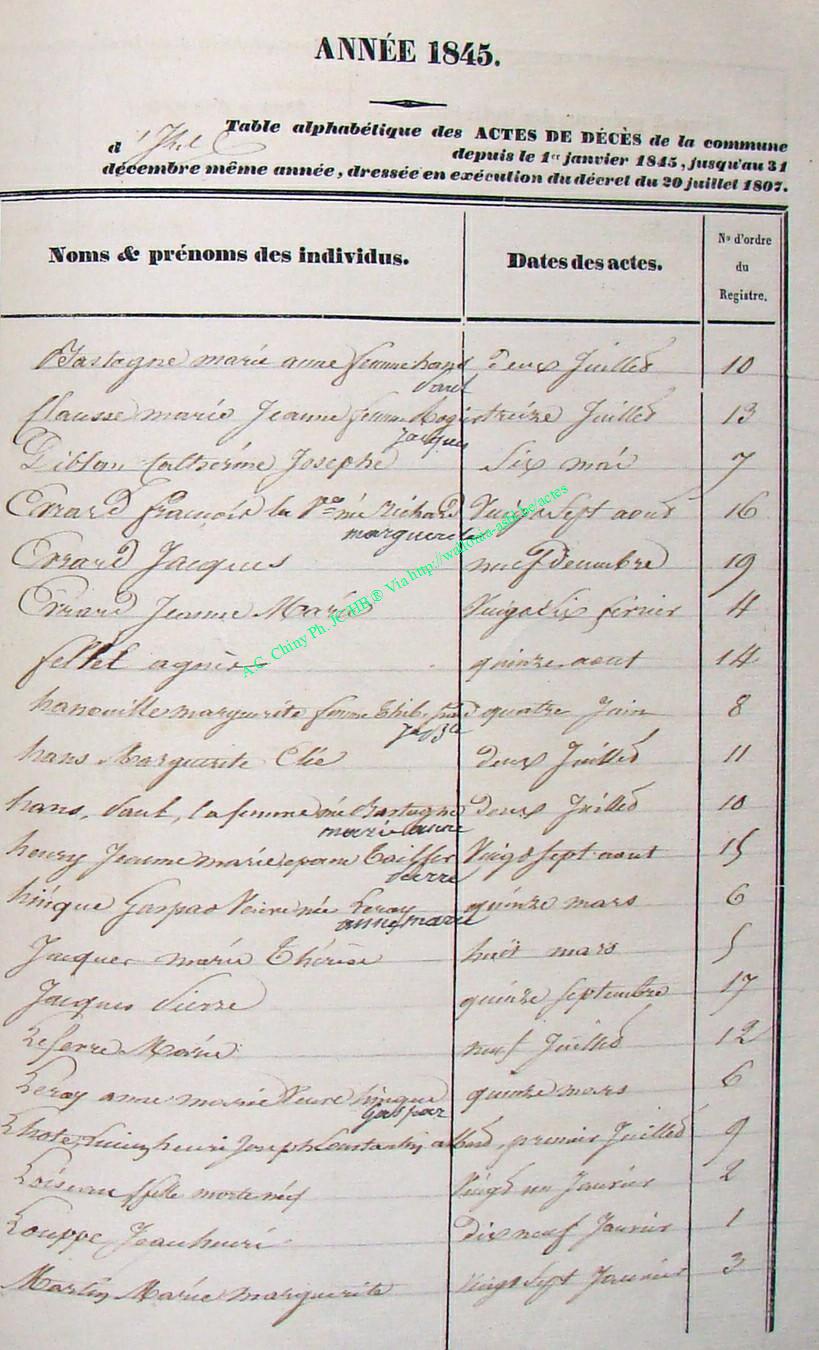 ANNÉE 1845.
Table alphabétique des ACTES DE DÉCÈS de la commune
d' Izel depuis le 1er janvier 1845, jusqu'au 31
décembre même année, dressée en exécution du décret du 20 juillet 1807.
Noms & prénoms des individus. Dates des actes. No d'ordre du Registre.
Bastogne marie anne femme hans deux Juillet 10
paul
Clausse marie Jeanne femme Rogier treize Juillet 13
Jacques
Giblon Catherine Josephe six mai 7
Errard françois la née Richard Vingt sept aout 16
marguerite
Errard Jacques neuf decembre 19
Errard Jeanne Marie Vingt six fevrier 4
fellet agnès quinze aout 14
hanouille marguerite femme quatre Juin 8
hans Marguerite Elie deux Juillet 11
hans, paul, la femme née Bastogne deux Juillet 10
marie anne
henry Jeanne marie epouse Vingt sept aout 15
pierre
hinque Gaspar Veuve née Leroy quinze mars 6
anne marie
Jacques marie Thérèse huit mars 5
Jacques pierre quinze septembre 17
Lefevre Marie neuf Juillet 12
Leroy anne marie Veuve hinque quinze mars 6
Gaspar
Lhote, henri Joseph Constantin premier Juillet 9
Loiseau fille morte née Vingt un Janvier 2
Louppe Jean henri dix neuf Janvier 1
Martin Marie marguerite Vingt sept Janvier 3
A.C. Chiny Ph. JC HB ® Via http://wallonia-asbl.be/actes